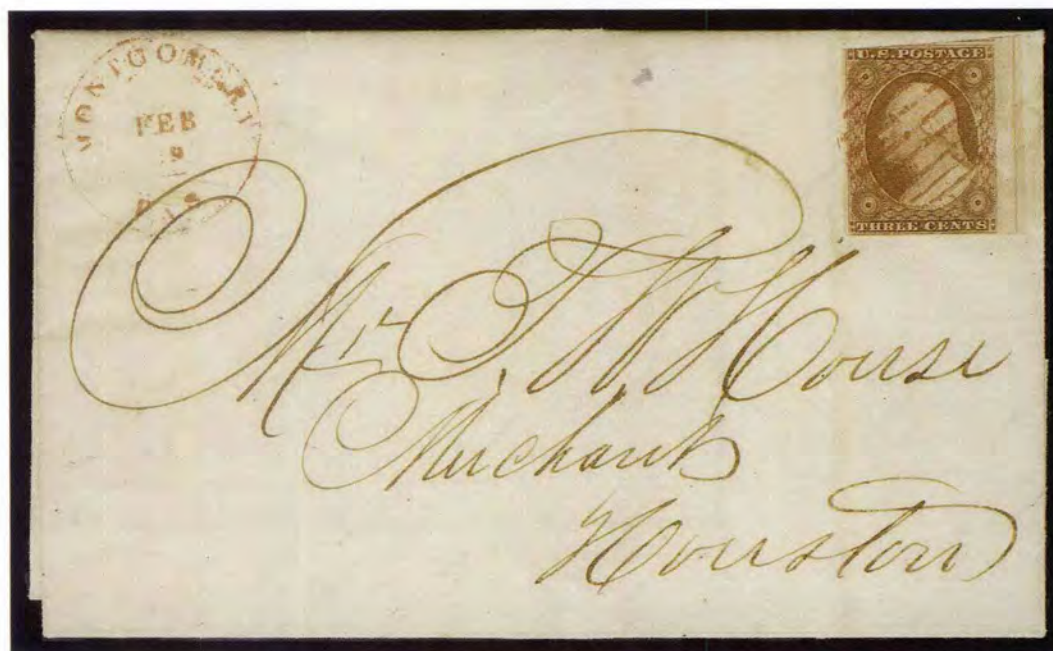 MONTGOMERY
FEB
9
U.S. POSTAGE
THREE CENTS
Mr T. W. House
Merchant
Houston